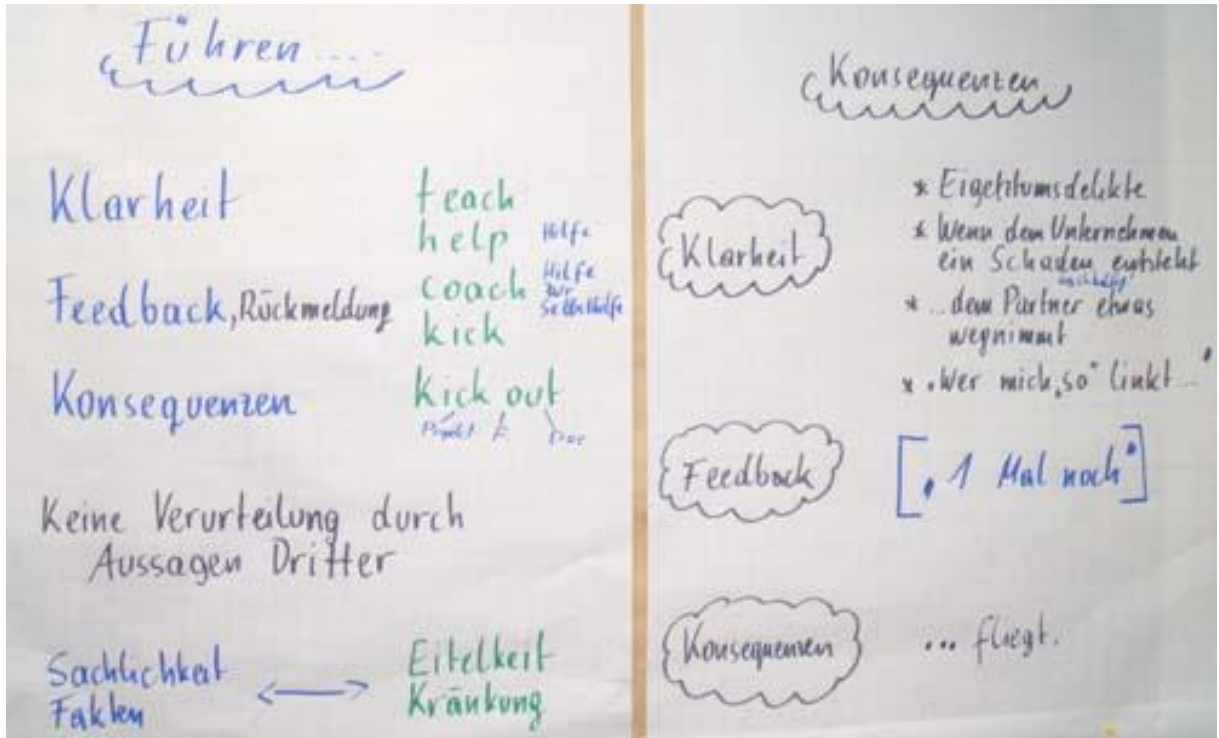 Führen....
Klarheit
Feedback, Rückmeldung
Konsequenzen
teach
help Hilfe
coach Hilfe zur Selbsthilfe
kick
kick out
Projekt
Keine Verurteilung durch
Aussagen Dritter
Sachlichkeit
Fakten
Eitelkeit
Kränkung
Konsequenzen
Klarheit
* Eigentumsdelikte
* Wenn dem Unternehmen
ein Schaden entsteht
* ... dem Partner etwas
wegnimmt
* „Wer mich „so" linkt..."
Feedback
[„1 Mal noch"]
Konsequenzen
... fliegt.